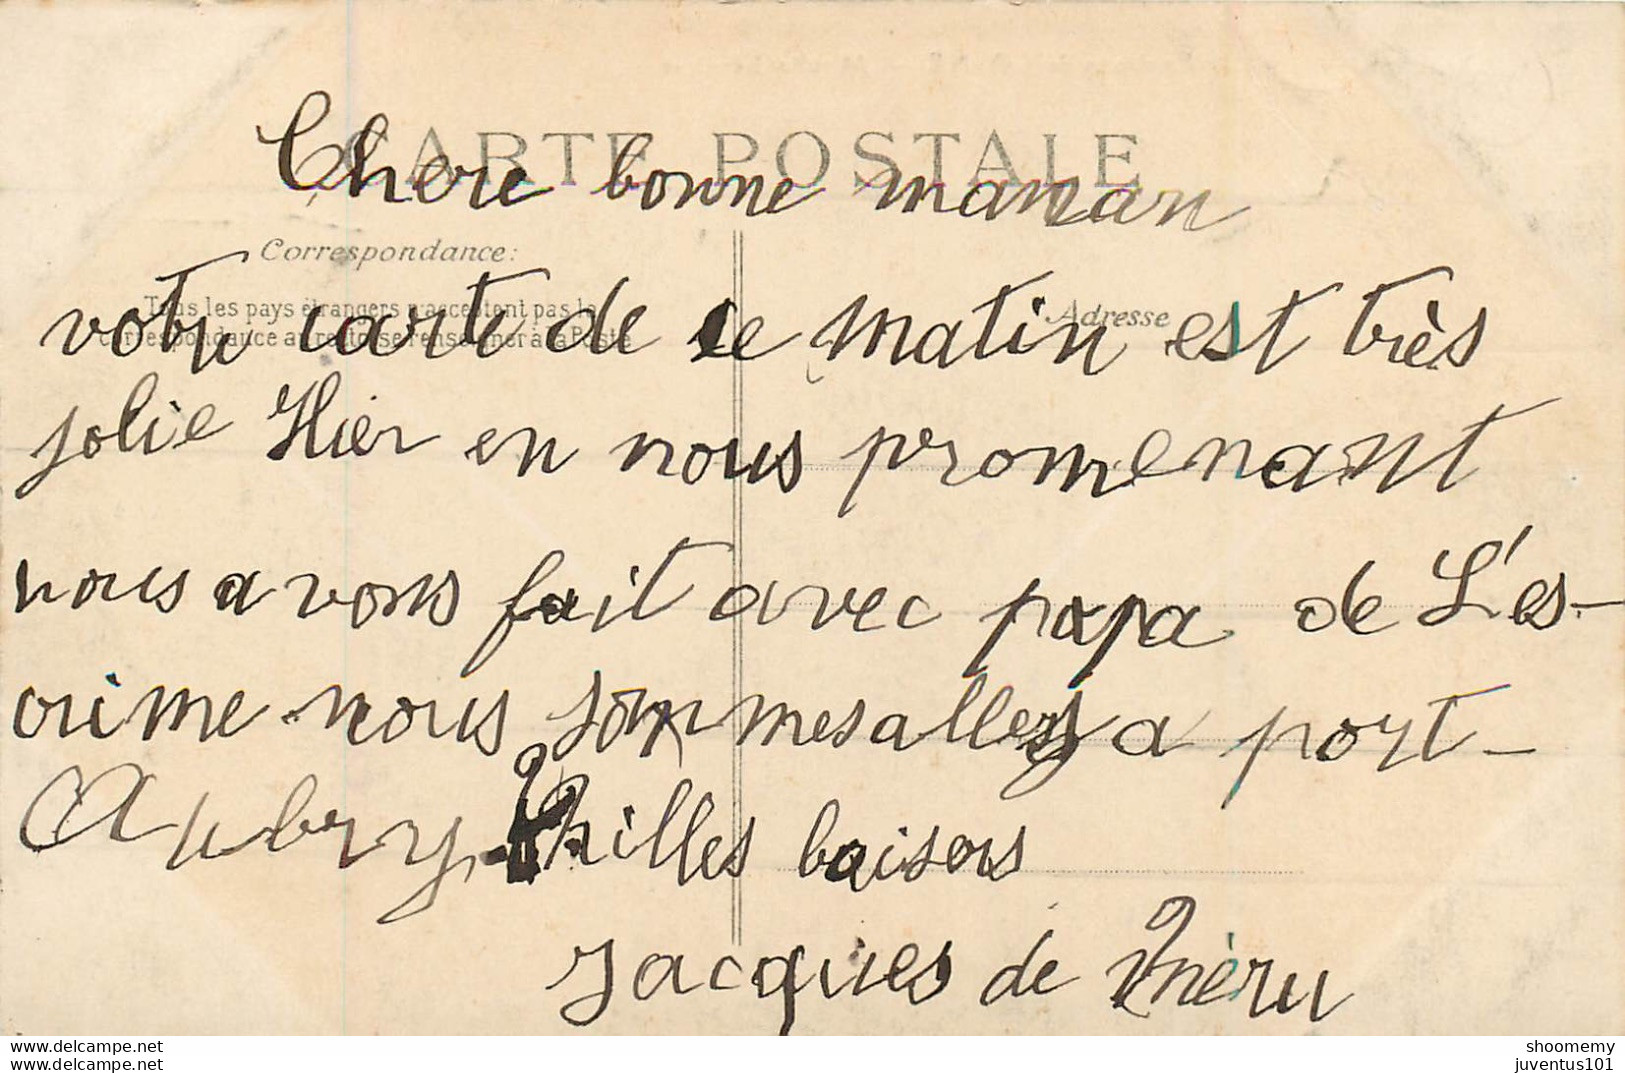 CARTE POSTALE
Chere bonne maman
Correspondance:
Tous les pays étrangers n'acceptent pas la
correspondance au recto se renseigner à la Poste
Adresse
votre carte de ce matin est très
jolie Hier en nous promenant
nous avons fait avec papa de L'es-
crime nous sommes allés a port-
Aubry. Milles baisers
Jacques de Méru
delcampe.net
delcampe.net
shoomemy
juventus101